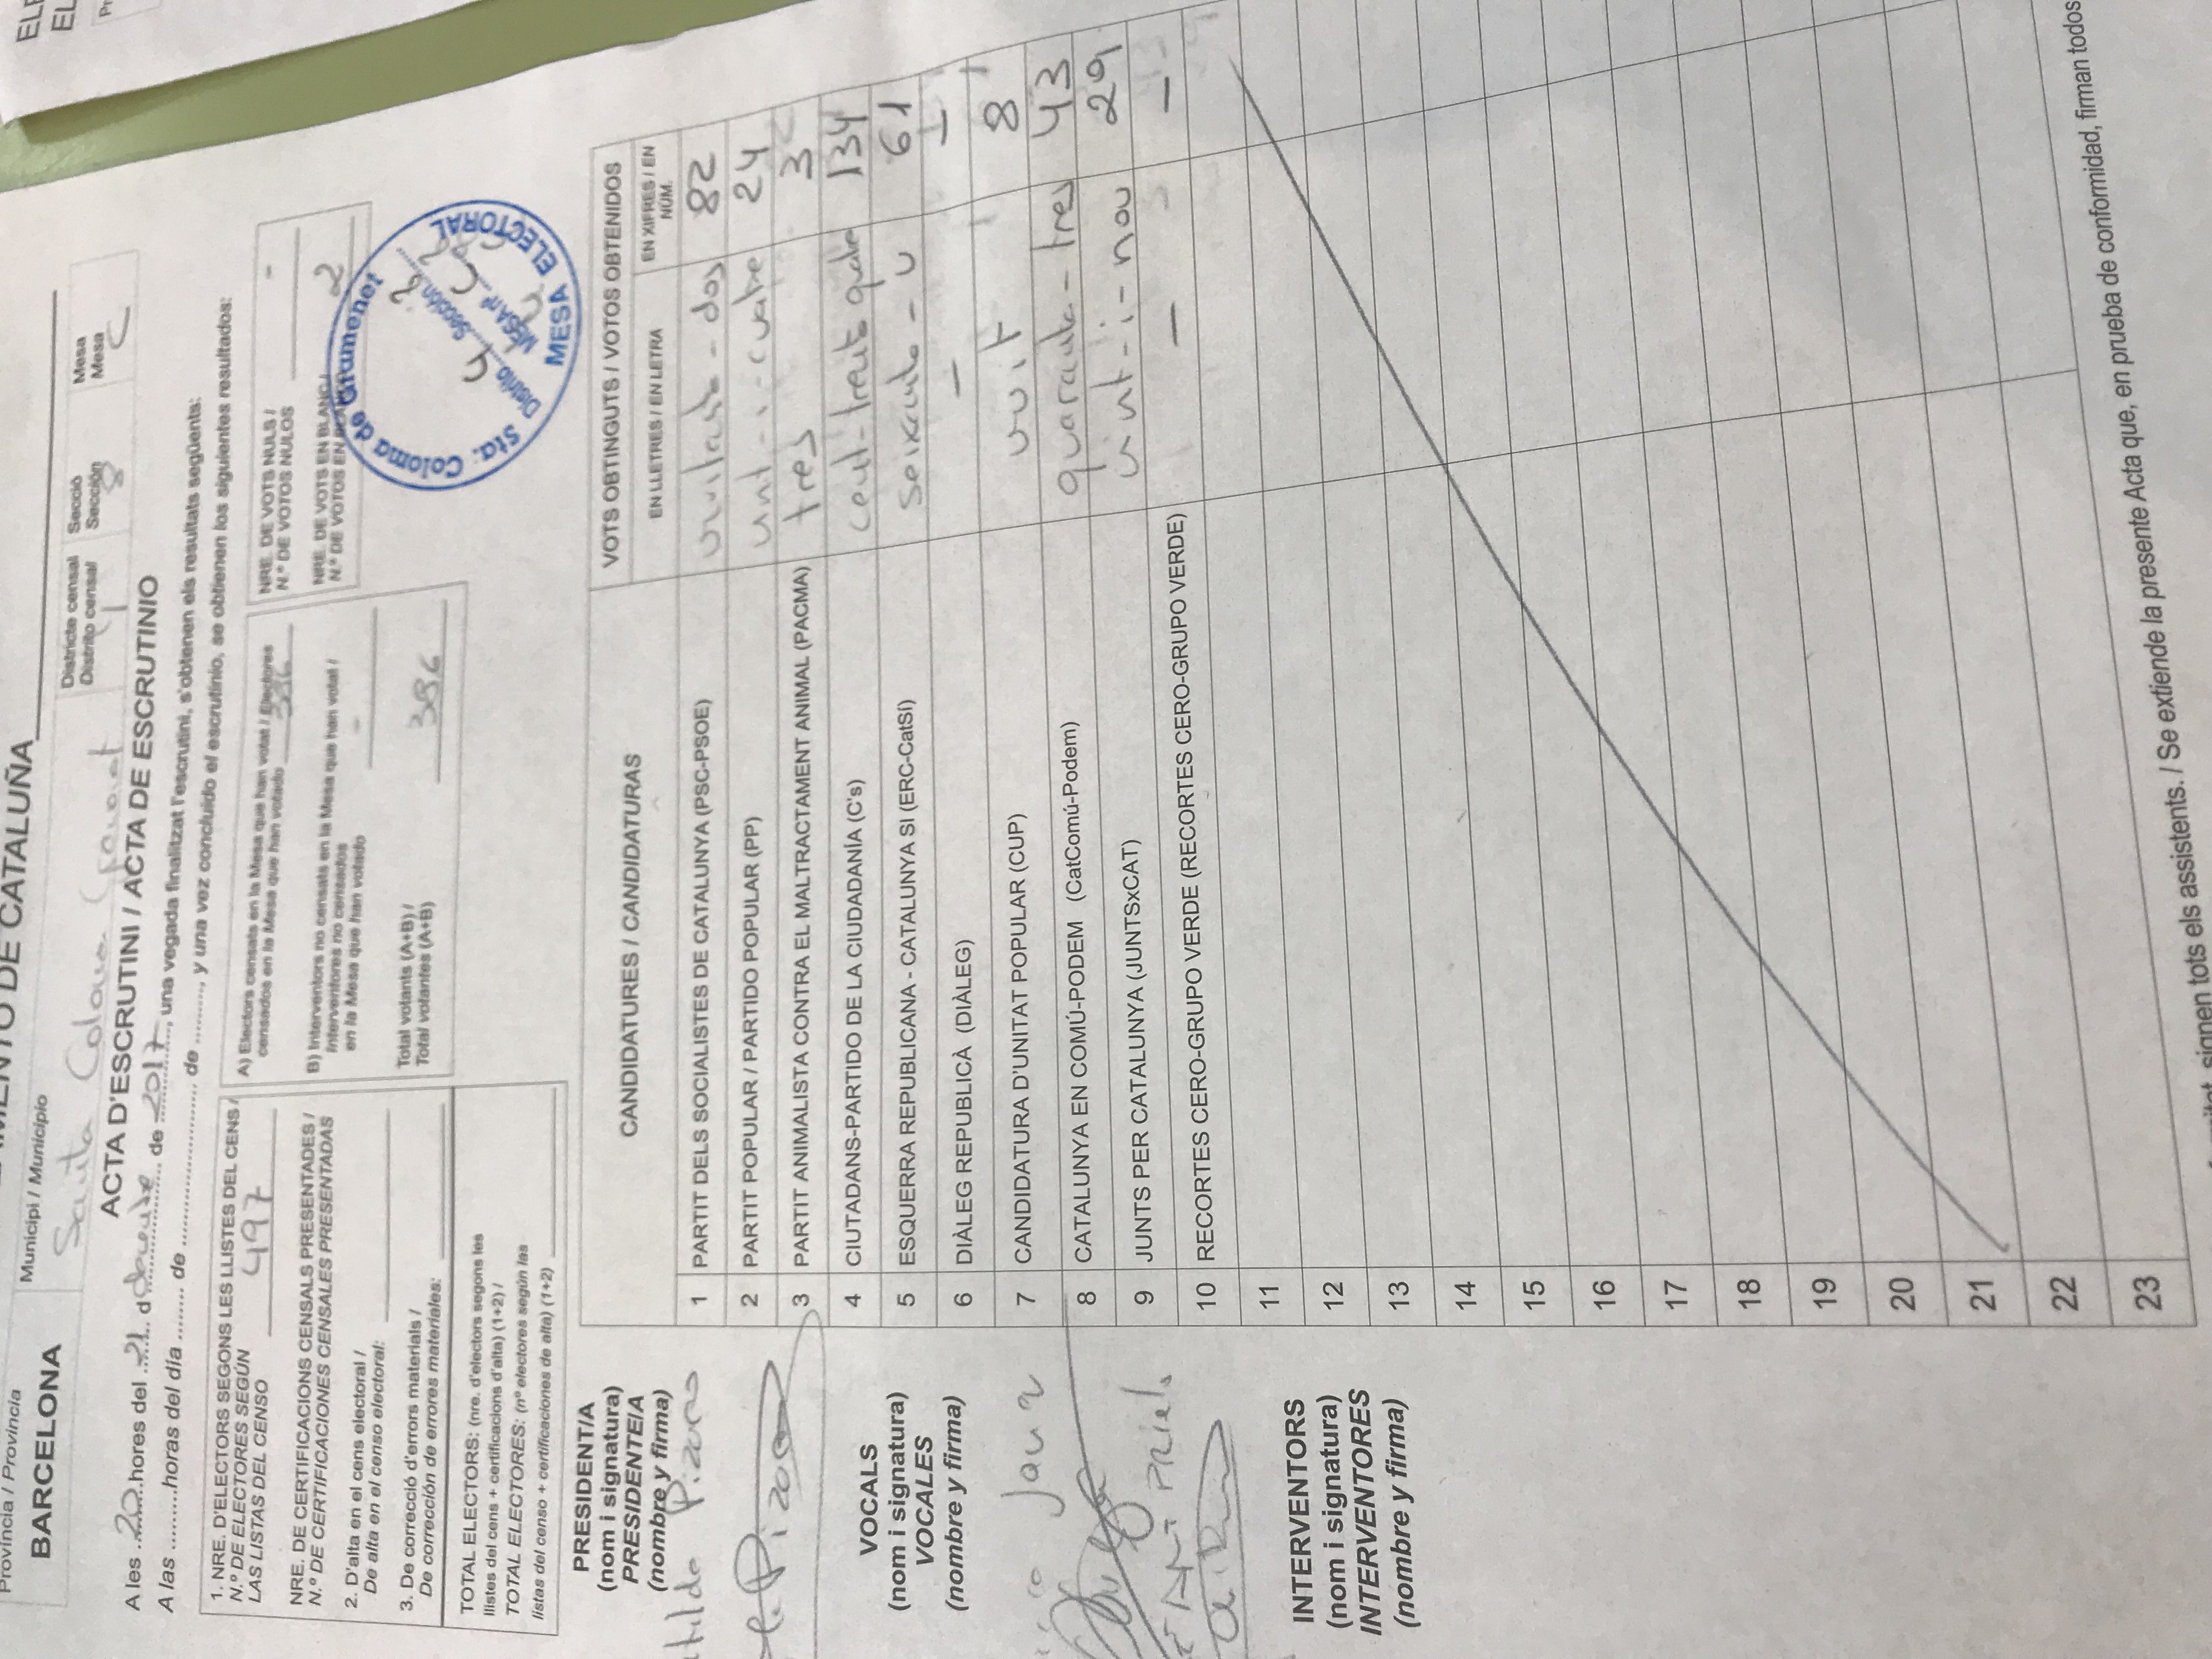 DE CATALUÑA
Província / Provincia
BARCELONA
Municipi / Municipio
Santa Coloma Gramenet
Districte censal
Distrito censal
4
Secció
Sección
8
Mesa
Mesa
C
ACTA D'ESCRUTINI / ACTA DE ESCRUTINIO
A les 20 hores del 21 d de 2017, una vegada finalitzat l'escrutini, s'obtenen els resultats següents:
A las .........horas del día ........ de ......................... de .........., y una vez concluido el escrutinio, se obtienen los siguientes resultados:
1. NRE. D'ELECTORS SEGONS LES LLISTES DEL CENS /
N.º DE ELECTORES SEGÚN
LAS LISTAS DEL CENSO 497
NRE. DE CERTIFICACIONS CENSALS PRESENTADES /
N.º DE CERTIFICACIONES CENSALES PRESENTADAS
2. D'alta en el cens electoral /
De alta en el censo electoral:
3. De correcció d'errors materials /
De corrección de errores materiales:
TOTAL ELECTORS: (nre. d'electors segons les
llistes del cens + certificacions d'alta) (1+2) /
TOTAL ELECTORES: (nº electores según las
listas del censo + certificaciones de alta) (1+2)
A) Electors censats en la Mesa que han votat / Electores
censados en la Mesa que han votado 386
B) Interventors no censats en la Mesa que han votat /
Interventores no censados
en la Mesa que han votado -
Total votants (A+B) /
Total votantes (A+B) 386
NRE. DE VOTS NULS /
N.º DE VOTOS NULOS -
NRE. DE VOTS EN BLANC /
N.º DE VOTOS EN BLANCO 2
Sta. Coloma de Gramenet
Distrito 4 Sección 8
MESA nº C
MESA ELECTORAL
PRESIDENT/A
(nom i signatura)
PRESIDENTE/A
(nombre y firma)
Pizarro
Pizarro
VOCALS
(nom i signatura)
VOCALES
(nombre y firma)
INTERVENTORS
(nom i signatura)
INTERVENTORES
(nombre y firma)
CANDIDATURES / CANDIDATURAS
VOTS OBTINGUTS / VOTOS OBTENIDOS
EN LLETRES / EN LETRA
EN XIFRES / EN
NÚM.
1 PARTIT DELS SOCIALISTES DE CATALUNYA (PSC-PSOE) vuitanta - dos 82
2 PARTIT POPULAR / PARTIDO POPULAR (PP) vint-i-cuatre 24
3 PARTIT ANIMALISTA CONTRA EL MALTRACTAMENT ANIMAL (PACMA) tres 3
4 CIUTADANS-PARTIDO DE LA CIUDADANÍA (C's) cent-trenta quatre 134
5 ESQUERRA REPUBLICANA - CATALUNYA SI (ERC-CatSí) seixanta - u 61
6 DIÀLEG REPUBLICÀ (DIÀLEG) - -
7 CANDIDATURA D'UNITAT POPULAR (CUP) vuit 8
8 CATALUNYA EN COMÚ-PODEM (CatComú-Podem) quaranta - tres 43
9 JUNTS PER CATALUNYA (JUNTSxCAT) vint-i-nou 29
10 RECORTES CERO-GRUPO VERDE (RECORTES CERO-GRUPO VERDE) - -
11
12
13
14
15
16
17
18
19
20
21
22
23
signen tots els assistents. / Se extiende la presente Acta que, en prueba de conformidad, firman todos